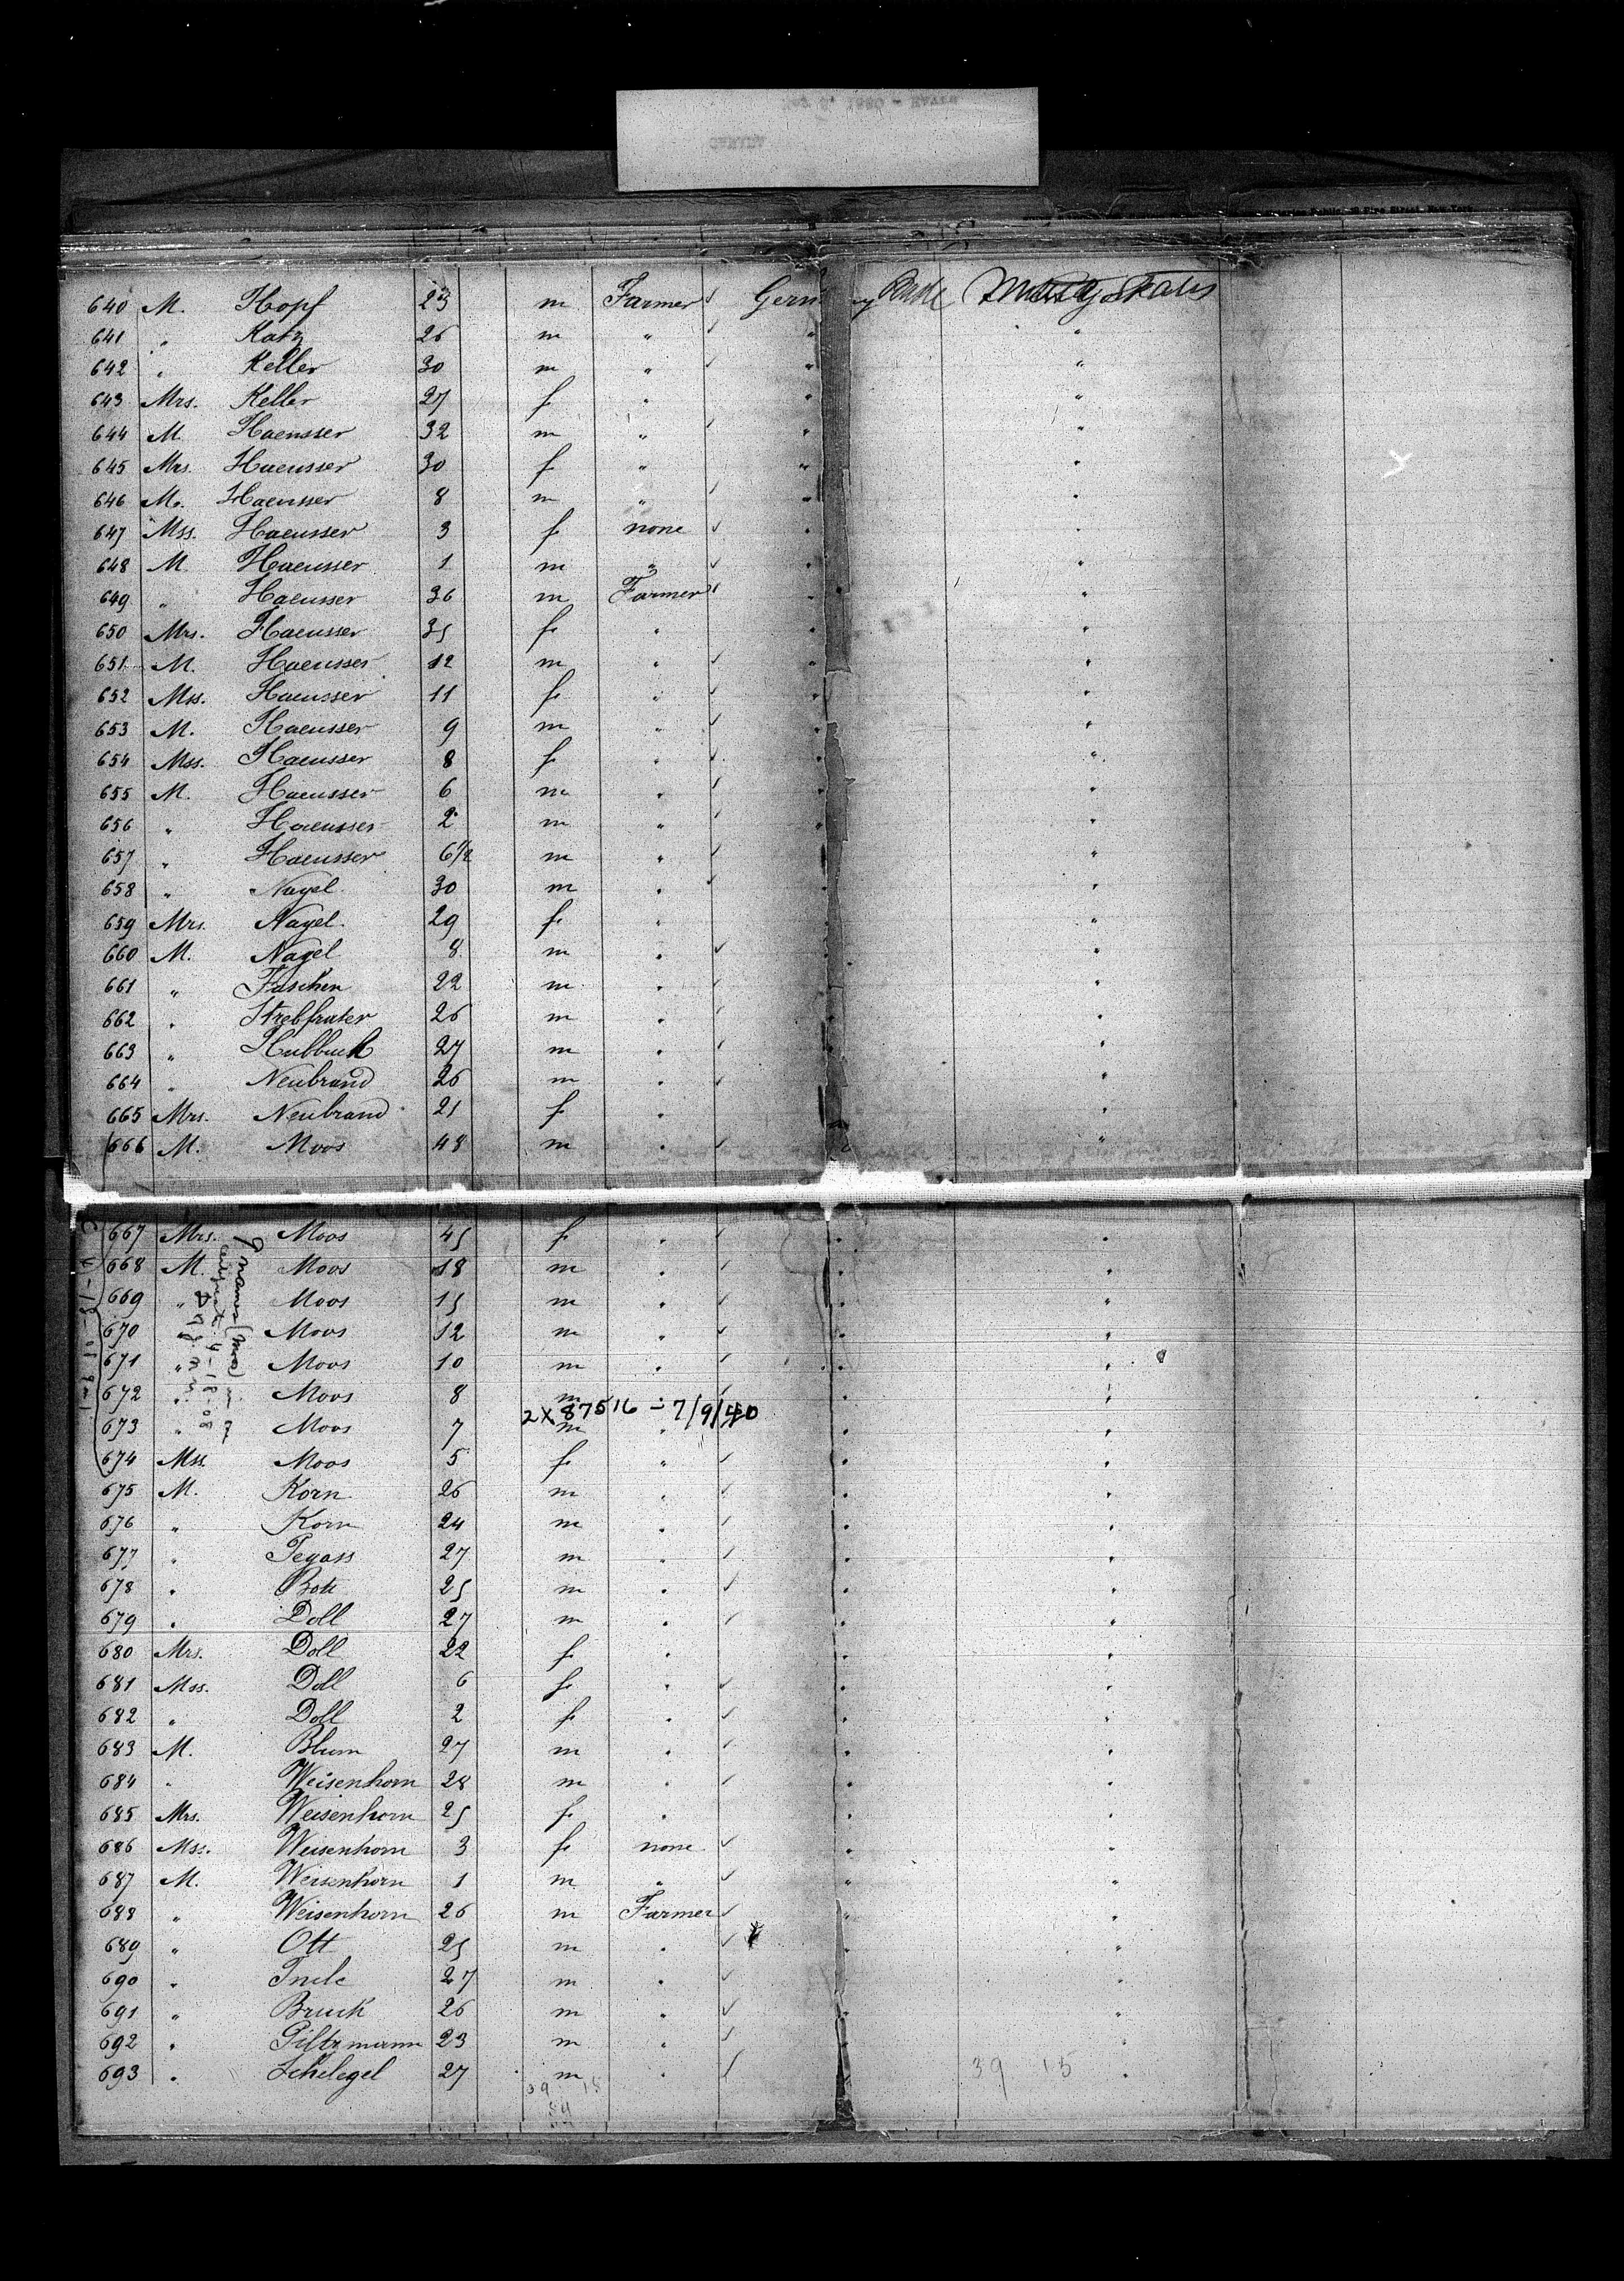 640 M. Hopf 23 m Farmer Germ y
641 " Katz 26 m "
642 " Keller 30 m "
643 Mrs. Keller 27 f "
644 M. Haeusser 32 m "
645 Mrs. Haeusser 30 f "
646 M. Haeusser 8 m "
647 Mss. Haeusser 3 f none
648 M. Haeusser 1 m "
649 " Haeusser 36 m Farmer
650 Mrs. Haeusser 35 f "
651 M. Haeusser 12 m "
652 Mss. Haeusser 11 f "
653 M. Haeusser 9 m "
654 Mss. Haeusser 8 f "
655 M. Haeusser 6 m "
656 " Haeusser 2 m "
657 " Haeusser 6/12 m "
658 " Nagel 30 m "
659 Mrs. Nagel 29 f "
660 M. Nagel 8 m "
661 " Faschen 22 m "
662 " 26 m "
663 " 27 m "
664 " Neubrand 26 m "
665 Mrs. Neubrand 21 f "
666 M. Moos 48 m "
667 Mrs. Moos 45 f "
668 M. Moos 18 m "
669 " Moos 15 m "
670 " Moos 12 m "
671 " Moos 10 m "
672 " Moos 8 m "
2X87516 - 7/9/40
673 " Moos 7 m "
674 Mss. Moos 5 f "
675 M. Korn 26 m "
676 " Korn 24 m "
677 " Pegass 27 m "
678 " 25 m "
679 " Doll 27 m "
680 Mrs. Doll 22 f "
681 Mss. Doll 6 f "
682 " Doll 2 f "
683 M. Blum 27 m "
684 " Weisenhorn 28 m "
685 Mrs. Weisenhorn 25 f "
686 Mss. Weisenhorn 3 f none
687 M. Weisenhorn 1 m "
688 " Weisenhorn 26 m Farmer
689 " Ott 25 m "
690 " 27 m "
691 " Bruck 26 m "
692 " Piltzmann 23 m "
693 " Schelegel 27 m "
39 15
39 15